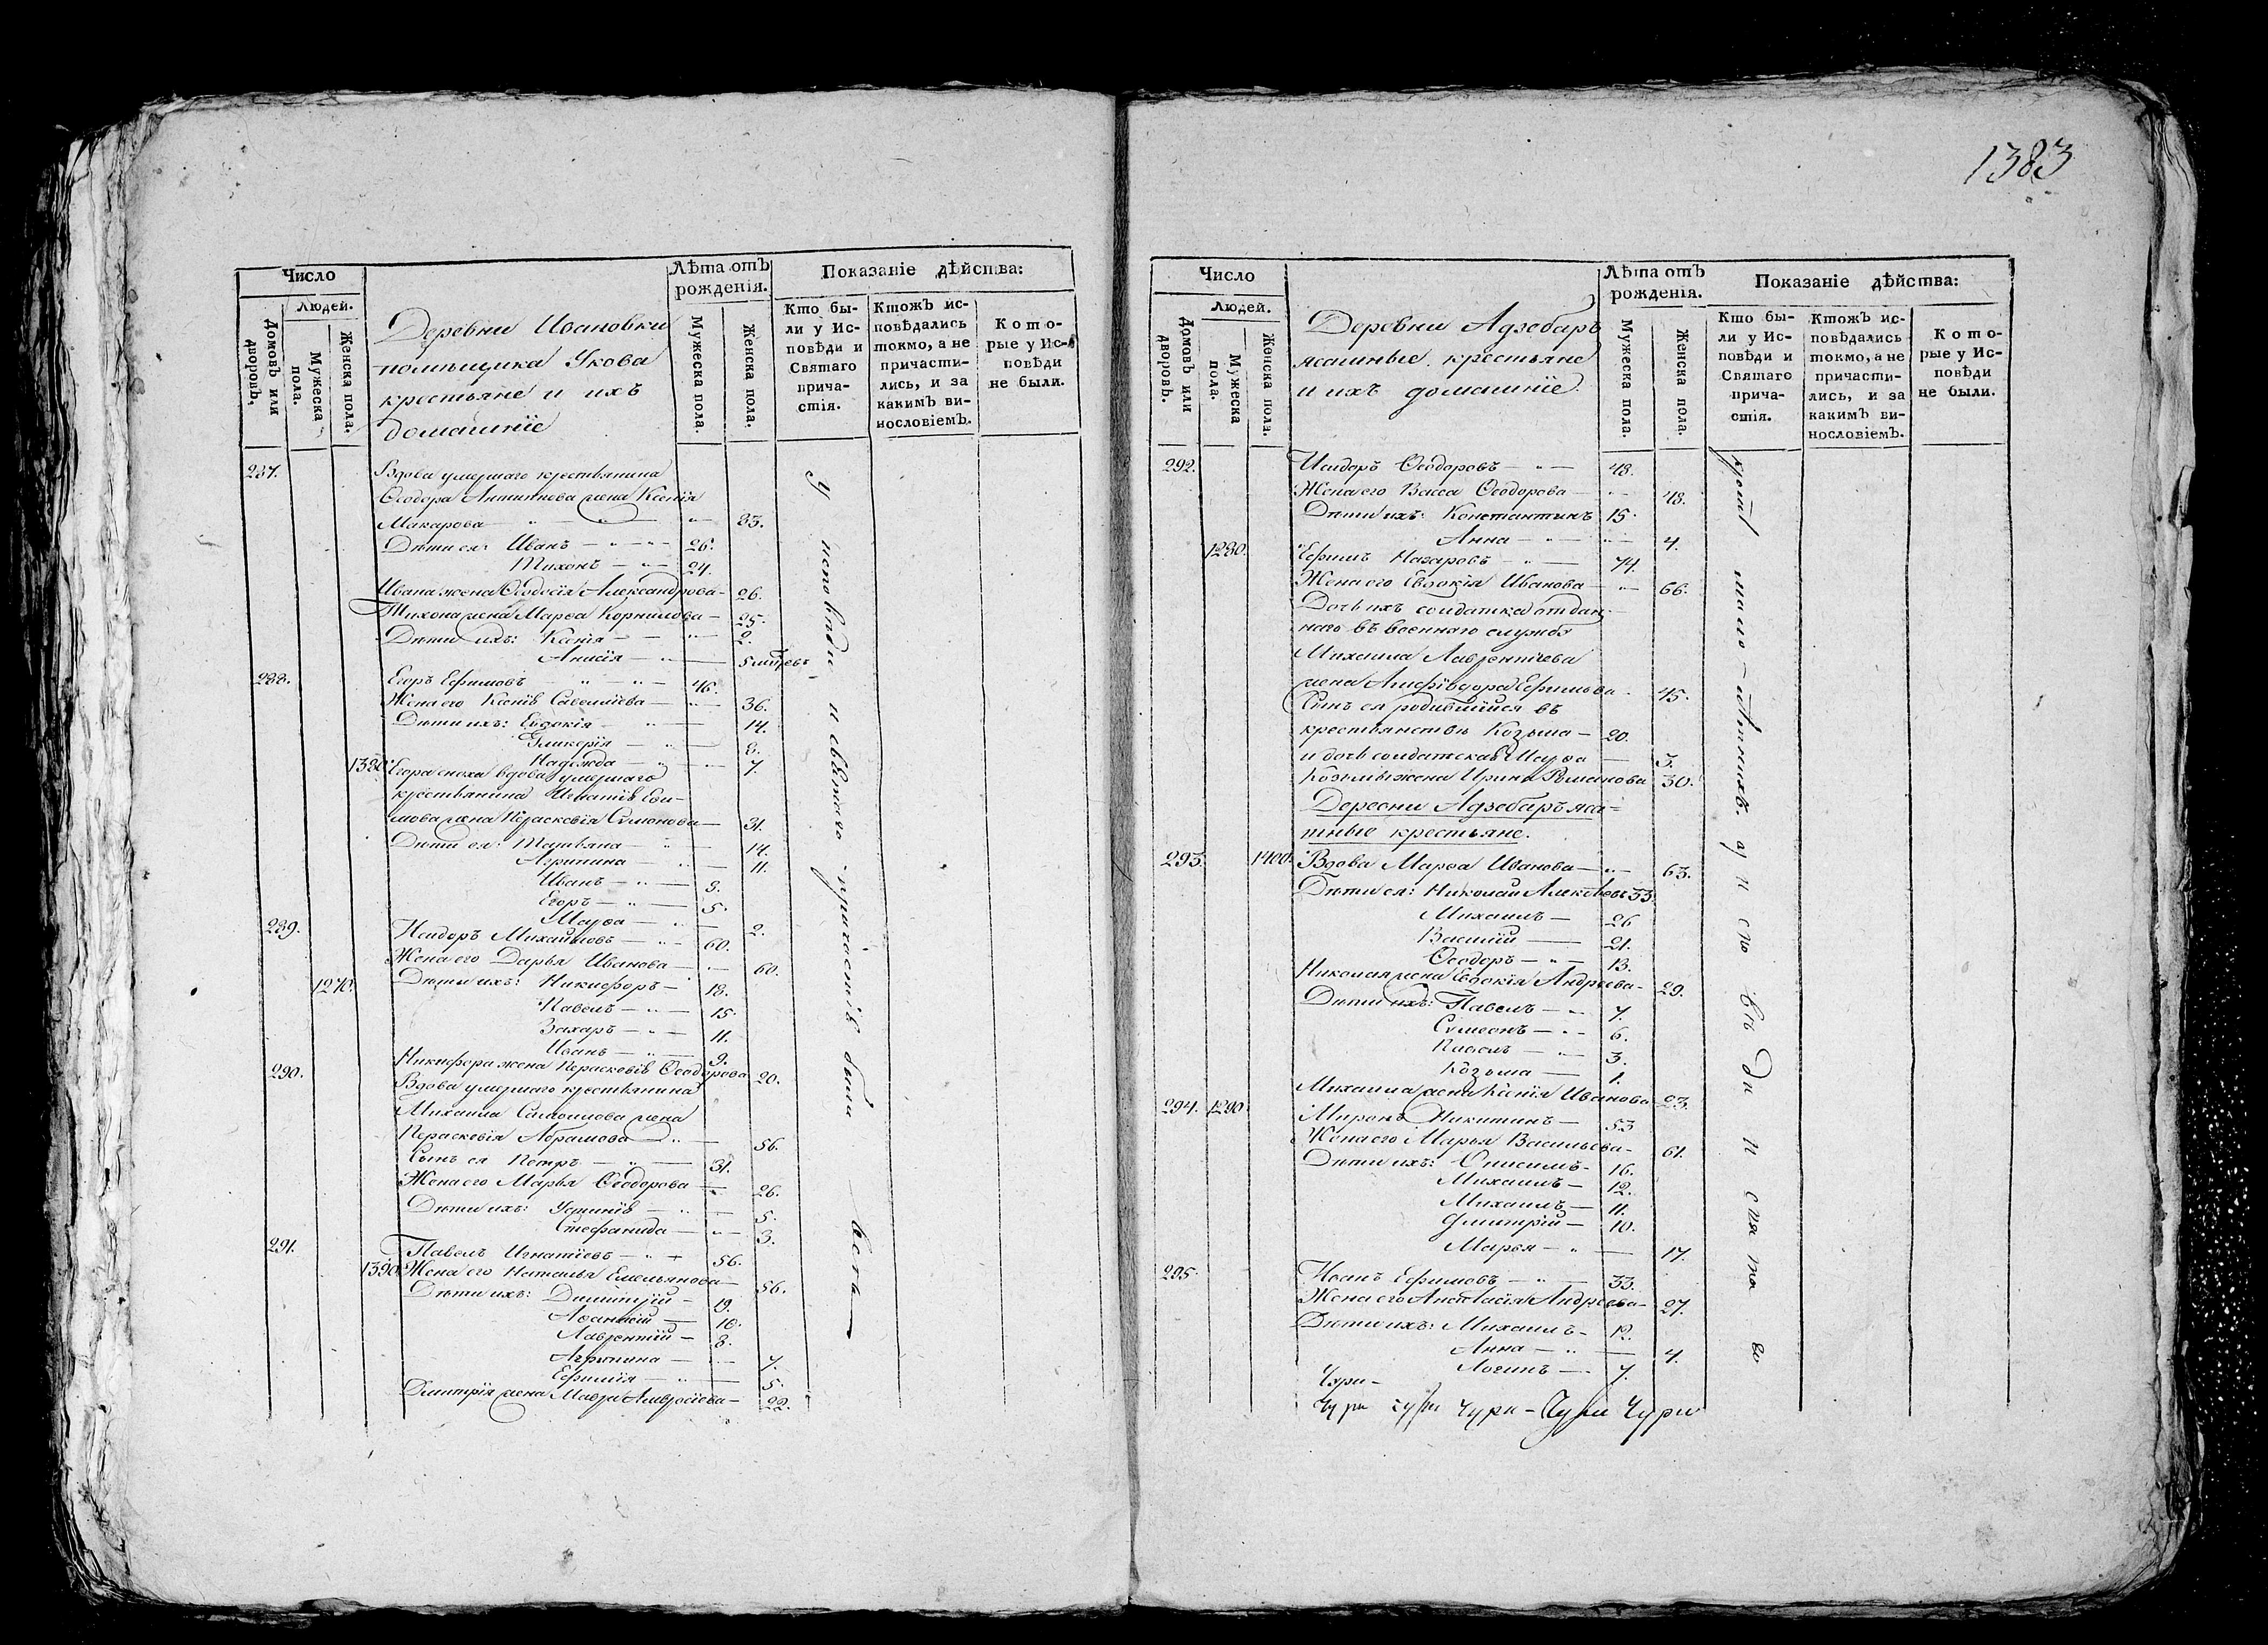 1383
Число
Лѣта отъ рожденія.
Показаніе дѣйства:
Людей.
Домовъ или дворовъ.
Мужеска пола.
Женска пола.
Мужеска пола.
Женска пола.
Кто были у Исповѣди и Святаго причастія.
Ктожъ исповѣдались токмо, а не причастились, и за какимъ винословіемъ.
Которые у Исповѣди не были.
Деревни Ивановки
помѣщика Укова
крестьяне и ихъ
домашніе
287. Вдова умершаго крестьянина
Ѳеодора Антипова жена Ксенія
Макарова 83.
Дѣти ея: Иванъ 26.
Тихонъ 24.
Ивана жена Ѳеодосія Александрова 26.
Тихона жена Марѳа Корнилова 25.
Дѣти ихъ: Ксенія 2.
Анисія 5
288. Егоръ Ефимовъ 46.
Жена его Ксенія Савеліева 36.
Дѣти ихъ: Евдокія 14.
Гликерія 8.
Надежда 7.
1380. Егора сноха вдова умершаго
крестьянина Игнатія Ефи-
мова жена Параскевія Симонова 31.
Дѣти ея: Татьяна 14.
Агрипина 11.
Иванъ 9.
Егоръ 5.
Марѳа 2.
289. Исидоръ Михайловъ 60.
Жена его Дарья Иванова 60.
1270. Дѣти ихъ: Никифоръ 18.
Павелъ 15.
Захаръ 11.
Иванъ 9.
Никифора жена Параскевія Ѳеодорова 20.
290. Вдова умершаго крестьянина
Михаила Самоилова жена
Параскевія Абрамова 56.
Сынъ ея Петръ 31.
Жена его Марья Ѳеодорова 26.
Дѣти ихъ: Устинія 5.
Стефанида 3.
291. Павелъ Игнатіевъ 56.
1390. Жена его Наталья Емельянова 56.
Дѣти ихъ: Димитрій 19.
Аѳанасій 10.
Лаврентій 8.
Агрипина 7.
Ефимія 5.
Дмитрія жена Мавра 22.
у исповѣди и святаго причастія были
Число
Лѣта отъ рожденія.
Показаніе дѣйства:
Людей.
Домовъ или дворовъ.
Мужеска пола.
Женска пола.
Мужеска пола.
Женска пола.
Кто были у Исповѣди и Святаго причастія.
Ктожъ исповѣдались токмо, а не причастились, и за какимъ винословіемъ.
Которые у Исповѣди не были.
Деревни Адзебаръ
ясашные крестьяне
и ихъ домашніе.
292. Исидоръ Ѳеодоровъ 48.
Жена его Васса Ѳеодорова 48.
Дѣти ихъ: Константинъ 15.
Анна 4.
1280. Ефимъ Назаровъ 74.
Жена его Евдокія Иванова 66.
Дочь ихъ солдатка отдан-
наго въ военную службу
Михаила Лаврентіева
жена Ефимова 45.
Сынъ ея родившійся въ
крестьянствѣ Козьма 20.
и дочь солдатская Марѳа 3.
Козьмы жена Ирина Романова 30.
Деревни Адзебаръ яса-
шные крестьяне.
293. 1400. Вдова Марѳа Иванова 63.
Дѣти ея: Николай Алексѣевъ 33.
Михаилъ 26
Василій 21.
Ѳеодоръ 13.
Николая жена Евдокія Андреева 29.
Дѣти ихъ: Павелъ 7.
Симеонъ 6.
Павелъ 3.
Козьма 1.
Михаила жена Ксенія Иванова 23.
294. 1290. Миронъ Никитинъ 53
Жена его Марья Васильева 61.
Дѣти ихъ: Онисимъ 16.
Михаилъ 12.
Михаилъ 11.
Дмитрій 10.
Марья 17.
295. Иванъ Ефимовъ 33.
Жена его Анастасія Андреева 27.
Дѣти ихъ: Михаилъ 12.
Анна 4.
Логинъ 7.
Чури Чури Чури